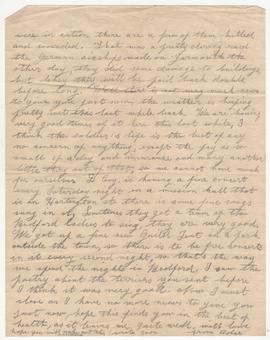 were in action there are a few of them killed
and wounded. That was a pretty daring raid
the German airships made on Yarmouth the
other day, they did some damage to buildings
but likely they will be paid back double
before long. Well there is not very much news
to give you just now, the weather is keeping
pretty wet this last while back. We are having
very good times of it here this last while, I
think the soldier's life is the best of any
no concern of anything, except the pay is so
small if and insurance and many another
little thing out of that, so we cannot have much
to ourselves. I am having a free concert
every Saturday night in a mission hall that
is in Hartington St there is some fine songs
sung in it, Sometimes they get a team of the
Bedford Ladies to sing, they are very good.
We got up a fine new Y.M.C.A. hut out back
outside the town, so there is to be free concerts
in it every second night, so that's the way
we spend the nights in Bedford. I saw the
poetry about the terriers you sent before
I think it was very good. Now I must
close as I have no more news to give you
just now, hope this finds you in the best of
health, as it leaves me quite well, with love
hope you will write soon. from